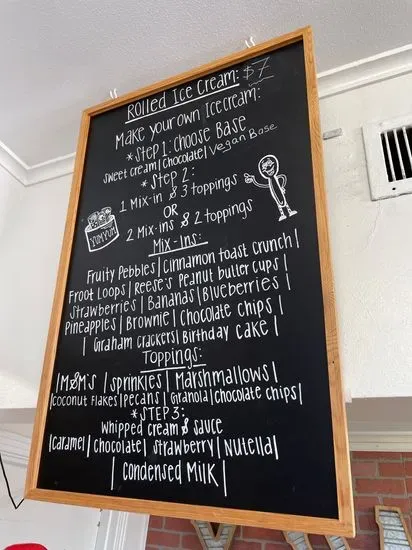 Rolled Ice Cream: $7
Make your own Icecream:
*Step 1: choose Base
sweet cream|chocolate|Vegan Base
*Step 2:
1 Mix-in & 3 toppings
OR
2 Mix-ins & 2 toppings
YUMYUM
Mix-Ins:
Fruity Pebbles|Cinnamon toast crunch|
Froot Loops|Reese's Peanut butter cups|
Strawberries|Bananas|Blueberries|
Pineapples|Brownie|chocolate chips|
|Graham crackers|Birthday cake|
Toppings:
|M&M's|sprinkles|Marshmallows|
|coconut flakes|pecans|Granola|chocolate chips|
*STEP 3:
whipped cream & sauce
|caramel|chocolate|strawberry|Nutella|
|condensed Milk|